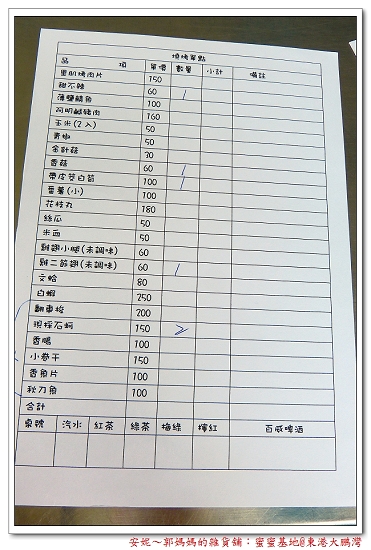 燒烤單點
品 項 單價 數量 小計 備註
里肌烤肉片 150
甜不辣 60 1
薄鹽鯖魚 100
阿明鹹豬肉 160
玉米(2入) 50
青椒 50
金針菇 30
香菇 60 1
帶皮茭白筍 100 1
蕃薯(小) 100
花枝丸 180
絲瓜 50
米血 50
雞翅小腿(未調味) 60
雞二節翅(未調味) 60 1
文蛤 80
白蝦 250
翻車梭 200
現採石蚵 150 2
香腸 100
小卷干 150
香魚片 100
秋刀魚 100
合計
桌號 汽水 紅茶 綠茶 梅綠 檸紅 百威啤酒
安妮～郭媽媽的雜貨舖：蜜蜜基地@東港大鵬灣